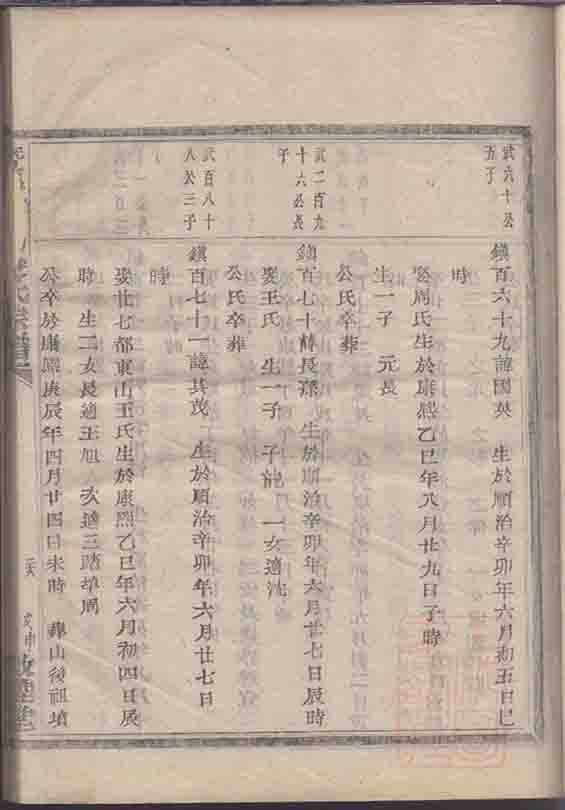 武六十公
五子
鎮百六十九諱國英　生於順治辛卯年六月初五日巳
時
娶周氏生於康熙乙巳年八月廿九日子時
生一子　元長
公氏卒葬
武二百九
十六公長
子
鎮百七十諱長孫　生於順治辛卯年六月廿七日辰時
娶王氏　生一子　子　一女適沈
公氏卒葬
武百八十
八公三子
鎮百七十一諱其茂　生於順治辛卯年六月廿七日
時
娶廿七都東山王氏生於康熙乙巳年六月初四日辰
時　生二女長適王旭人次適三踏埠周
公卒於康熙庚辰年四月廿四日未時　葬山後祖墳
氏宗譜